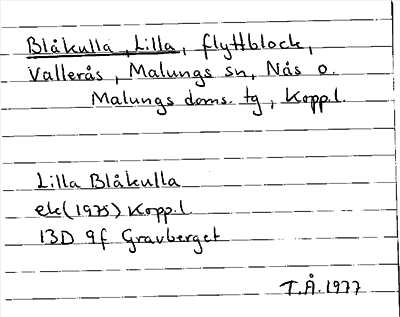 Blåkulla, Lilla, flyttblock,
Vallerås, Malungs sn, Nås o.
Malungs doms. tg, Kopp.l.
Lilla Blåkulla
ek(1975) Kopp.l
13D 9f Gravberget
T.Å. 1977